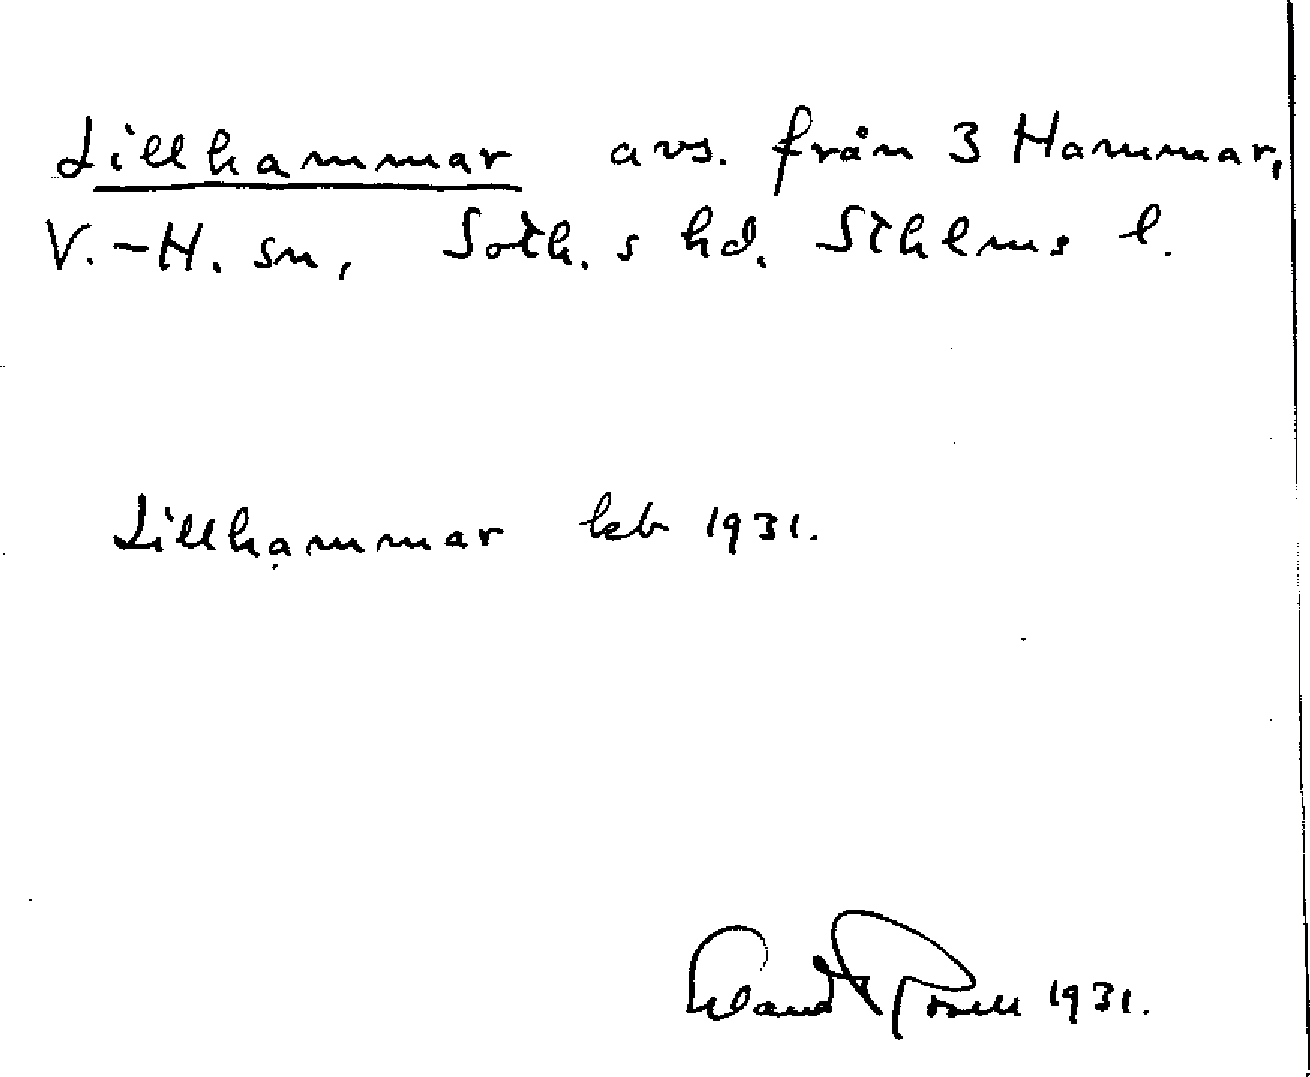 Lillhammar avs. från 3 Hammar,
V.-H. sn, Soth. s hd. Sthlms l.
Lillhammar kb 1931.
Erland Rosell 1931.